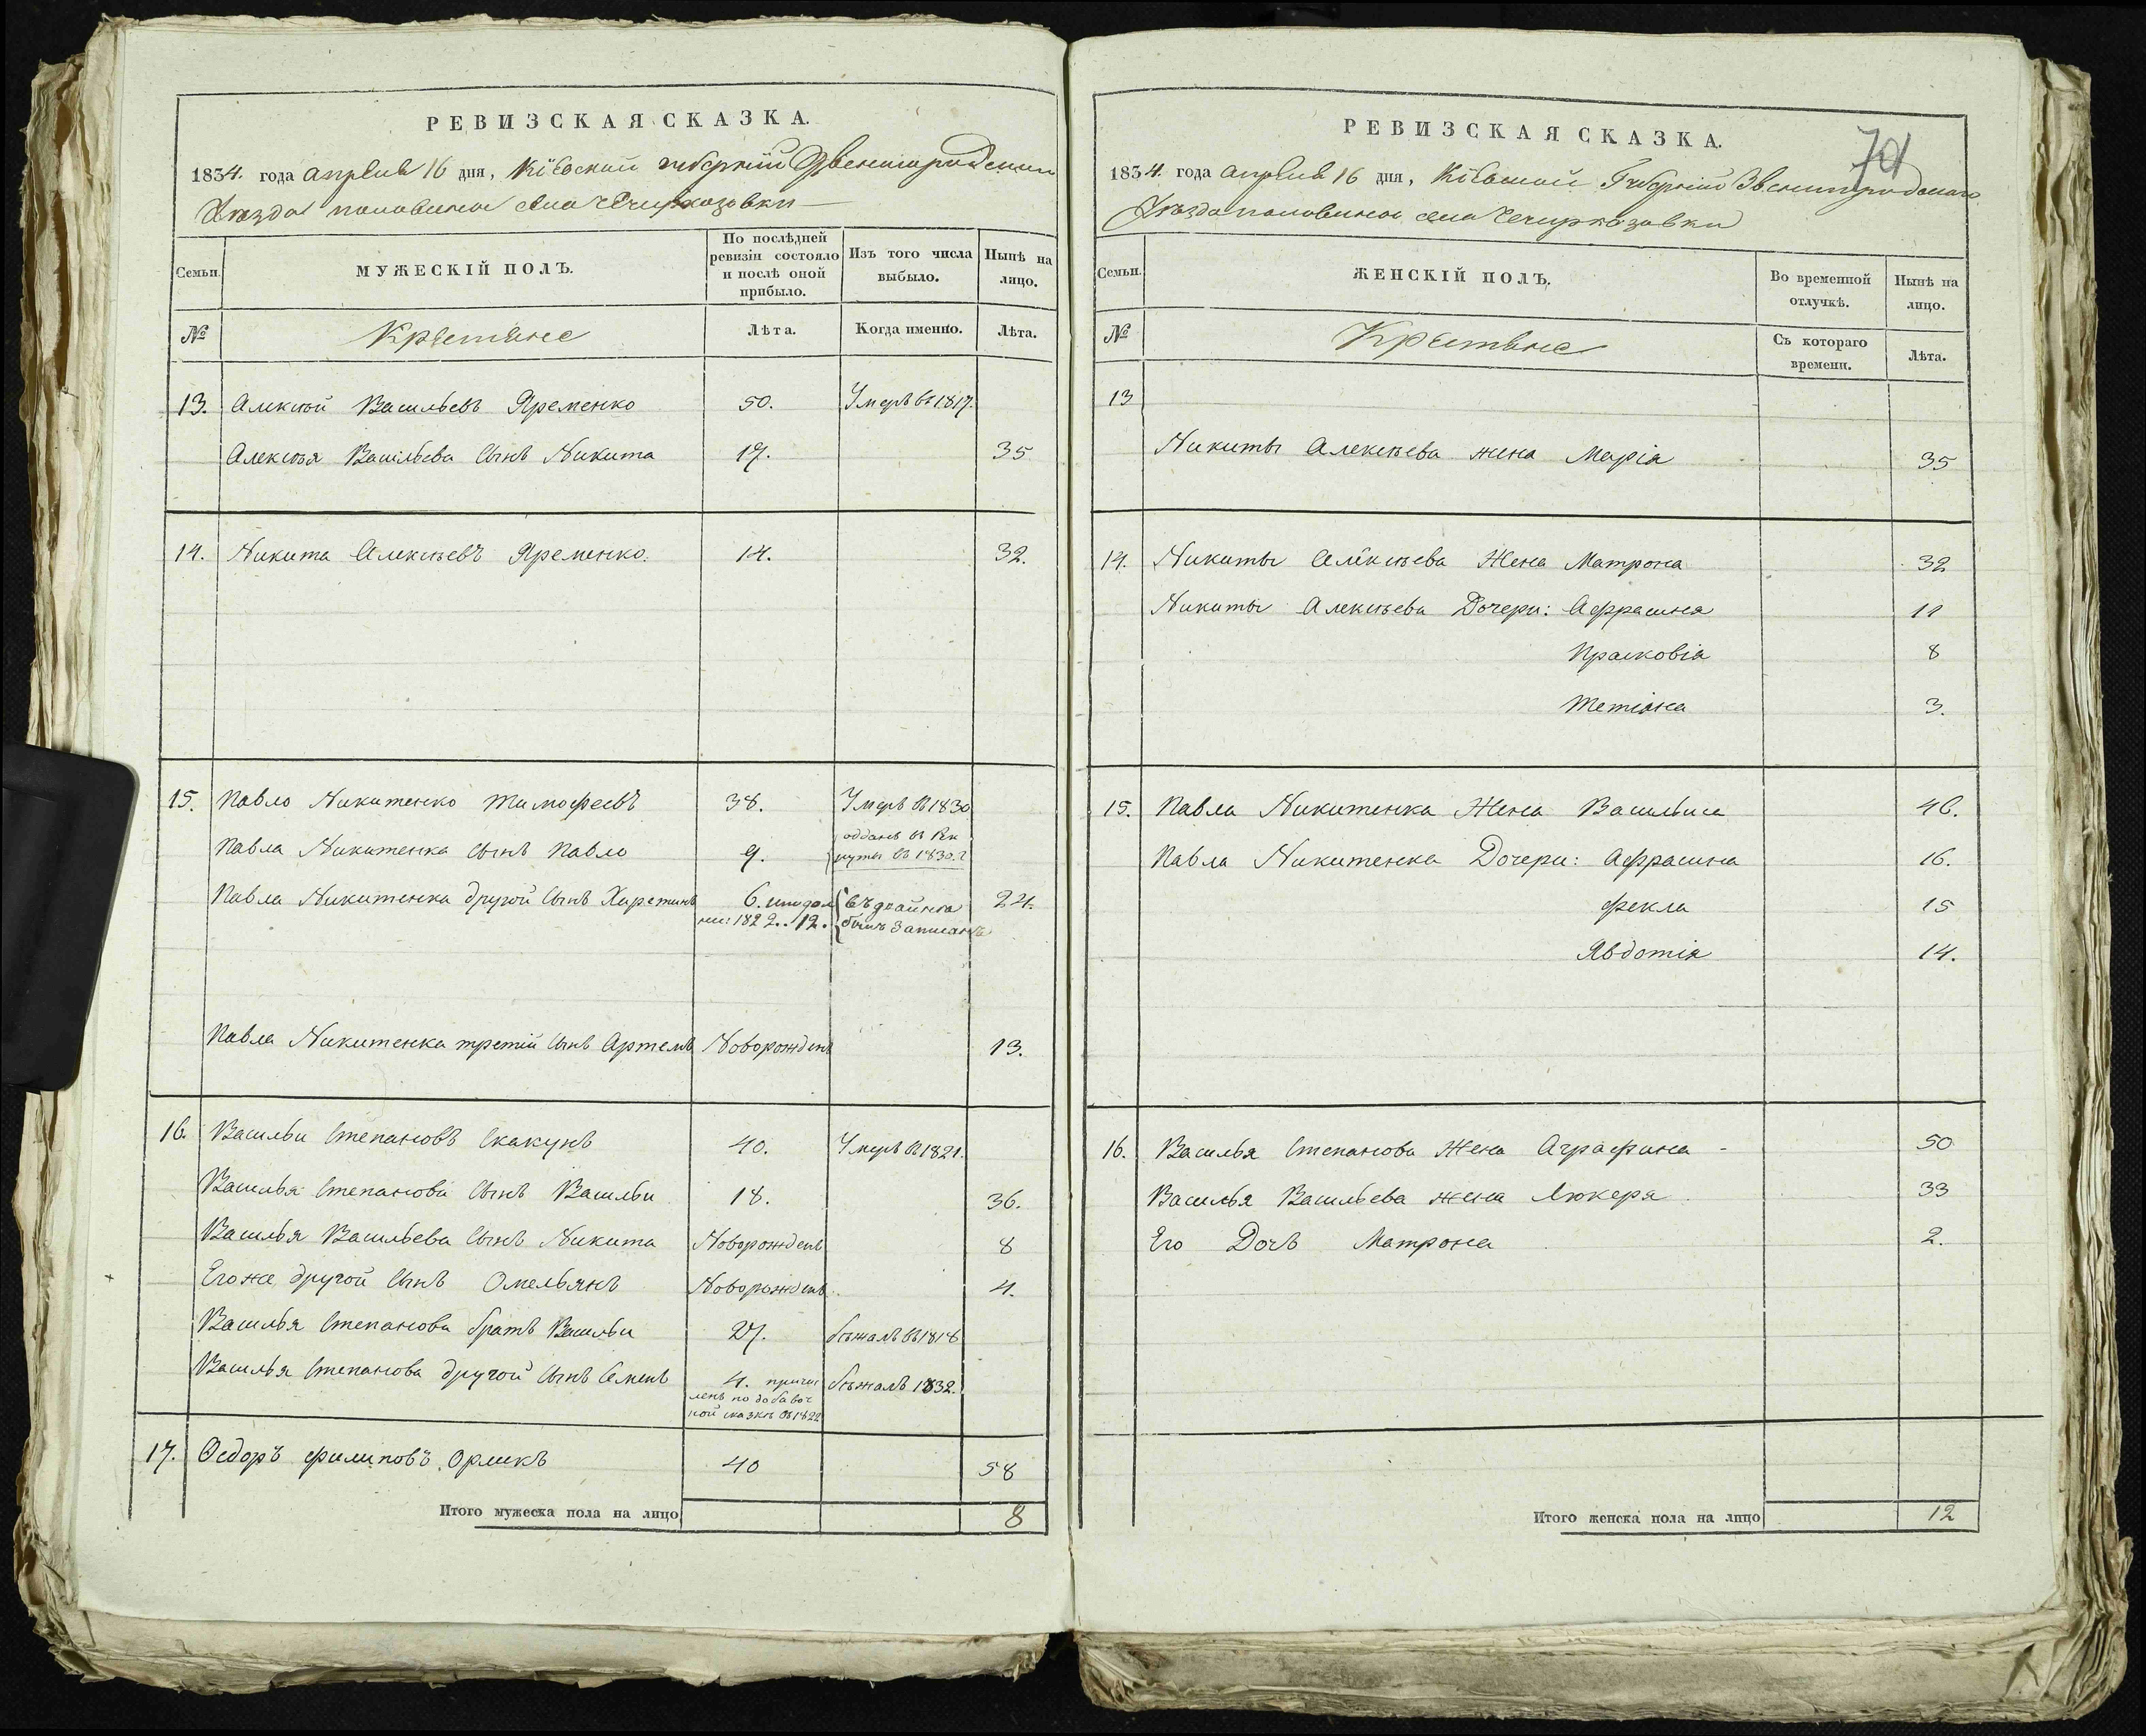 РЕВИЗСКАЯ СКАЗКА.
1834. года апреля 16 дня, Кіевской губерніи Звенигородскаго
Уѣзда половины села Чечиркозовки
Семьи.
МУЖЕСКІЙ ПОЛЪ.
По послѣдней ревизіи состояло и послѣ оной прибыло.
Изъ того числа выбыло.
Нынѣ на лицо.
№
Крестьяне
Лѣта.
Когда именно.
Лѣта.
13. Алексѣй Васильевъ Яременко 50. Умеръ въ 1817.
Алексѣя Васильева сынъ Никита 17. 35
14. Никита Алексѣевъ Яременко. 14. 32.
15. Павло Никитенко Тимофеевъ 38. Умеръ въ 1830
Павла Никитенка сынъ Павло 9. отданъ въ Рек
руты въ 1830.г
Павла Никитенка другой сынъ Харетинъ 6. 24.
1822.. 12. былъ записанъ
Павла Никитенка третій сынъ Артемъ Новорожденъ 13.
16. Васильи Степановъ Скакунъ 40. Умеръ въ 1821.
Василья Степанова сынъ Васильи 18. 36.
Василья Васильева сынъ Никита Новорожденъ 8
Его же другой сынъ Омельянъ Новорожденъ 4.
Василья Степанова братъ Васильи 27. бѣжалъ въ 1818
Василья Степанова другой сынъ Семенъ 4. причис бѣжалъ 1832.
ленъ по добавоч
ной сказкѣ въ 1822
17. Ѳедоръ Филиповъ Орликъ 40 58
Итого мужеска пола на лицо 8
РЕВИЗСКАЯ СКАЗКА.
1834. года апреля 16 дня, Кіевской Губерніи Звенигородскаго
Уѣзда половины села Чечиркозовки
Семьи.
ЖЕНСКІЙ ПОЛЪ.
Во временной отлучкѣ.
Нынѣ на лицо.
№
Крестьяне
Съ котораго времени.
Лѣта.
13
Никиты Алексѣева жена Марія 35
14. Никиты Алексѣева Жена Матрона 32
Никиты Алексѣева Дочери: Афрасиня 11
Прасковія 8
Тетіяна 3.
15. Павла Никитенка Жена Васильиса 46.
Павла Никитенка Дочери: Афрасина 16.
Фекла 15
Явдотія 14.
16. Василья Степанова Жена Аграфина - 50
Василья Васильева жена Люкеря 33
Его Дочь Матрона 2.
Итого женска пола на лицо 12